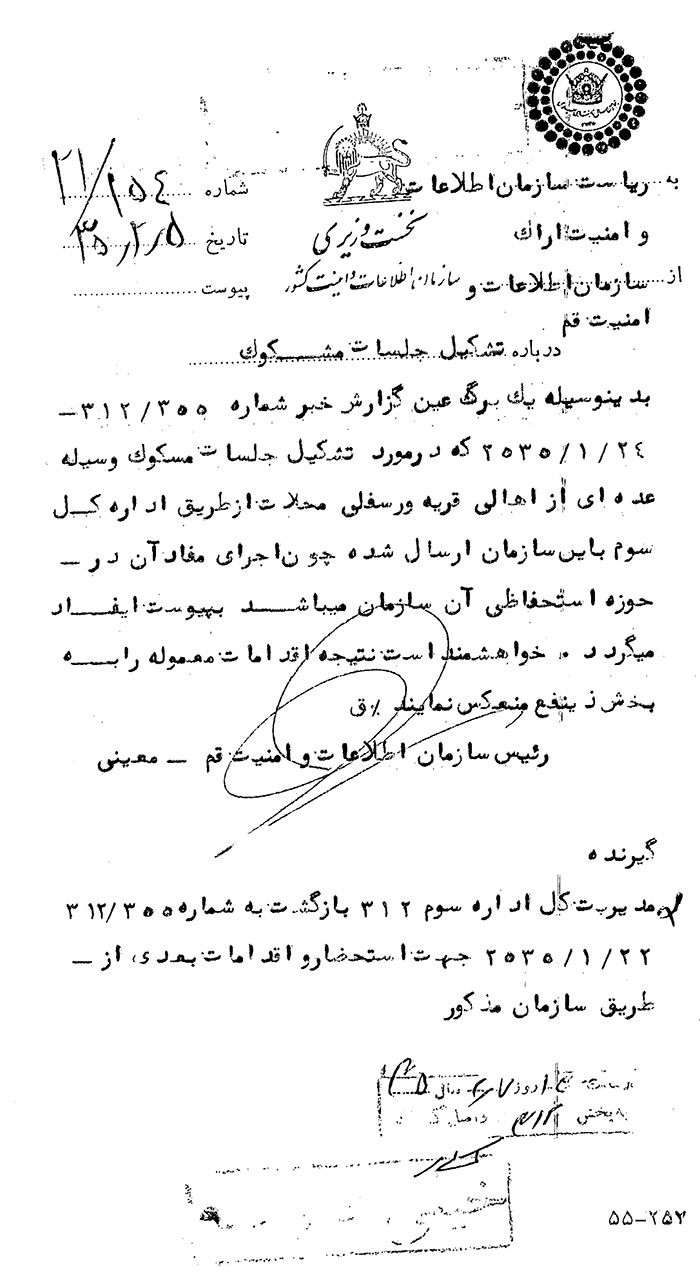 به ریاست سازمان اطلاعات
و امنیت اراك
از سازمان اطلاعات و
امنیت قم
نخست وزیری
سازمان اطلاعات و امنیت کشور
شماره ۲۱/۱۵۴
تاریخ ۳۵/۲/۵
پیوست
درباره تشکیل جلسات مشکوك
بدینوسیله یك برگ عین گزارش خبر شماره ۳۱۲/۳۵۵ –
۲۵۳۵/۱/۲۴ که درمورد تشکیل جلسات مسکوك وسیله
عده ای از اهالی قریه ورسفلی محلات ازطریق اداره کل
سوم باین سازمان ارسال شده چون اجرای مفادآن در –
حوزه استحفاظی آن سازمان میباشد بپیوست ایفاد
میگردد . خواهشمند است نتیجه اقدامات معموله رابه
بخش ذینفع منعکس نمایند٪ ق
رئیس سازمان اطلاعات و امنیت قم – معینی
گیرنده
مدیریت کل اداره سوم ۳۱۲ بازگشت به شماره ۳۱۲/۳۵۵
۲۵۳۵/۱/۲۲ جهت استحضار و اقدامات بعدی از –
طریق سازمان مذکور
روز
به بخش ۳۱۲ واصل
۵۵-۲۵۲